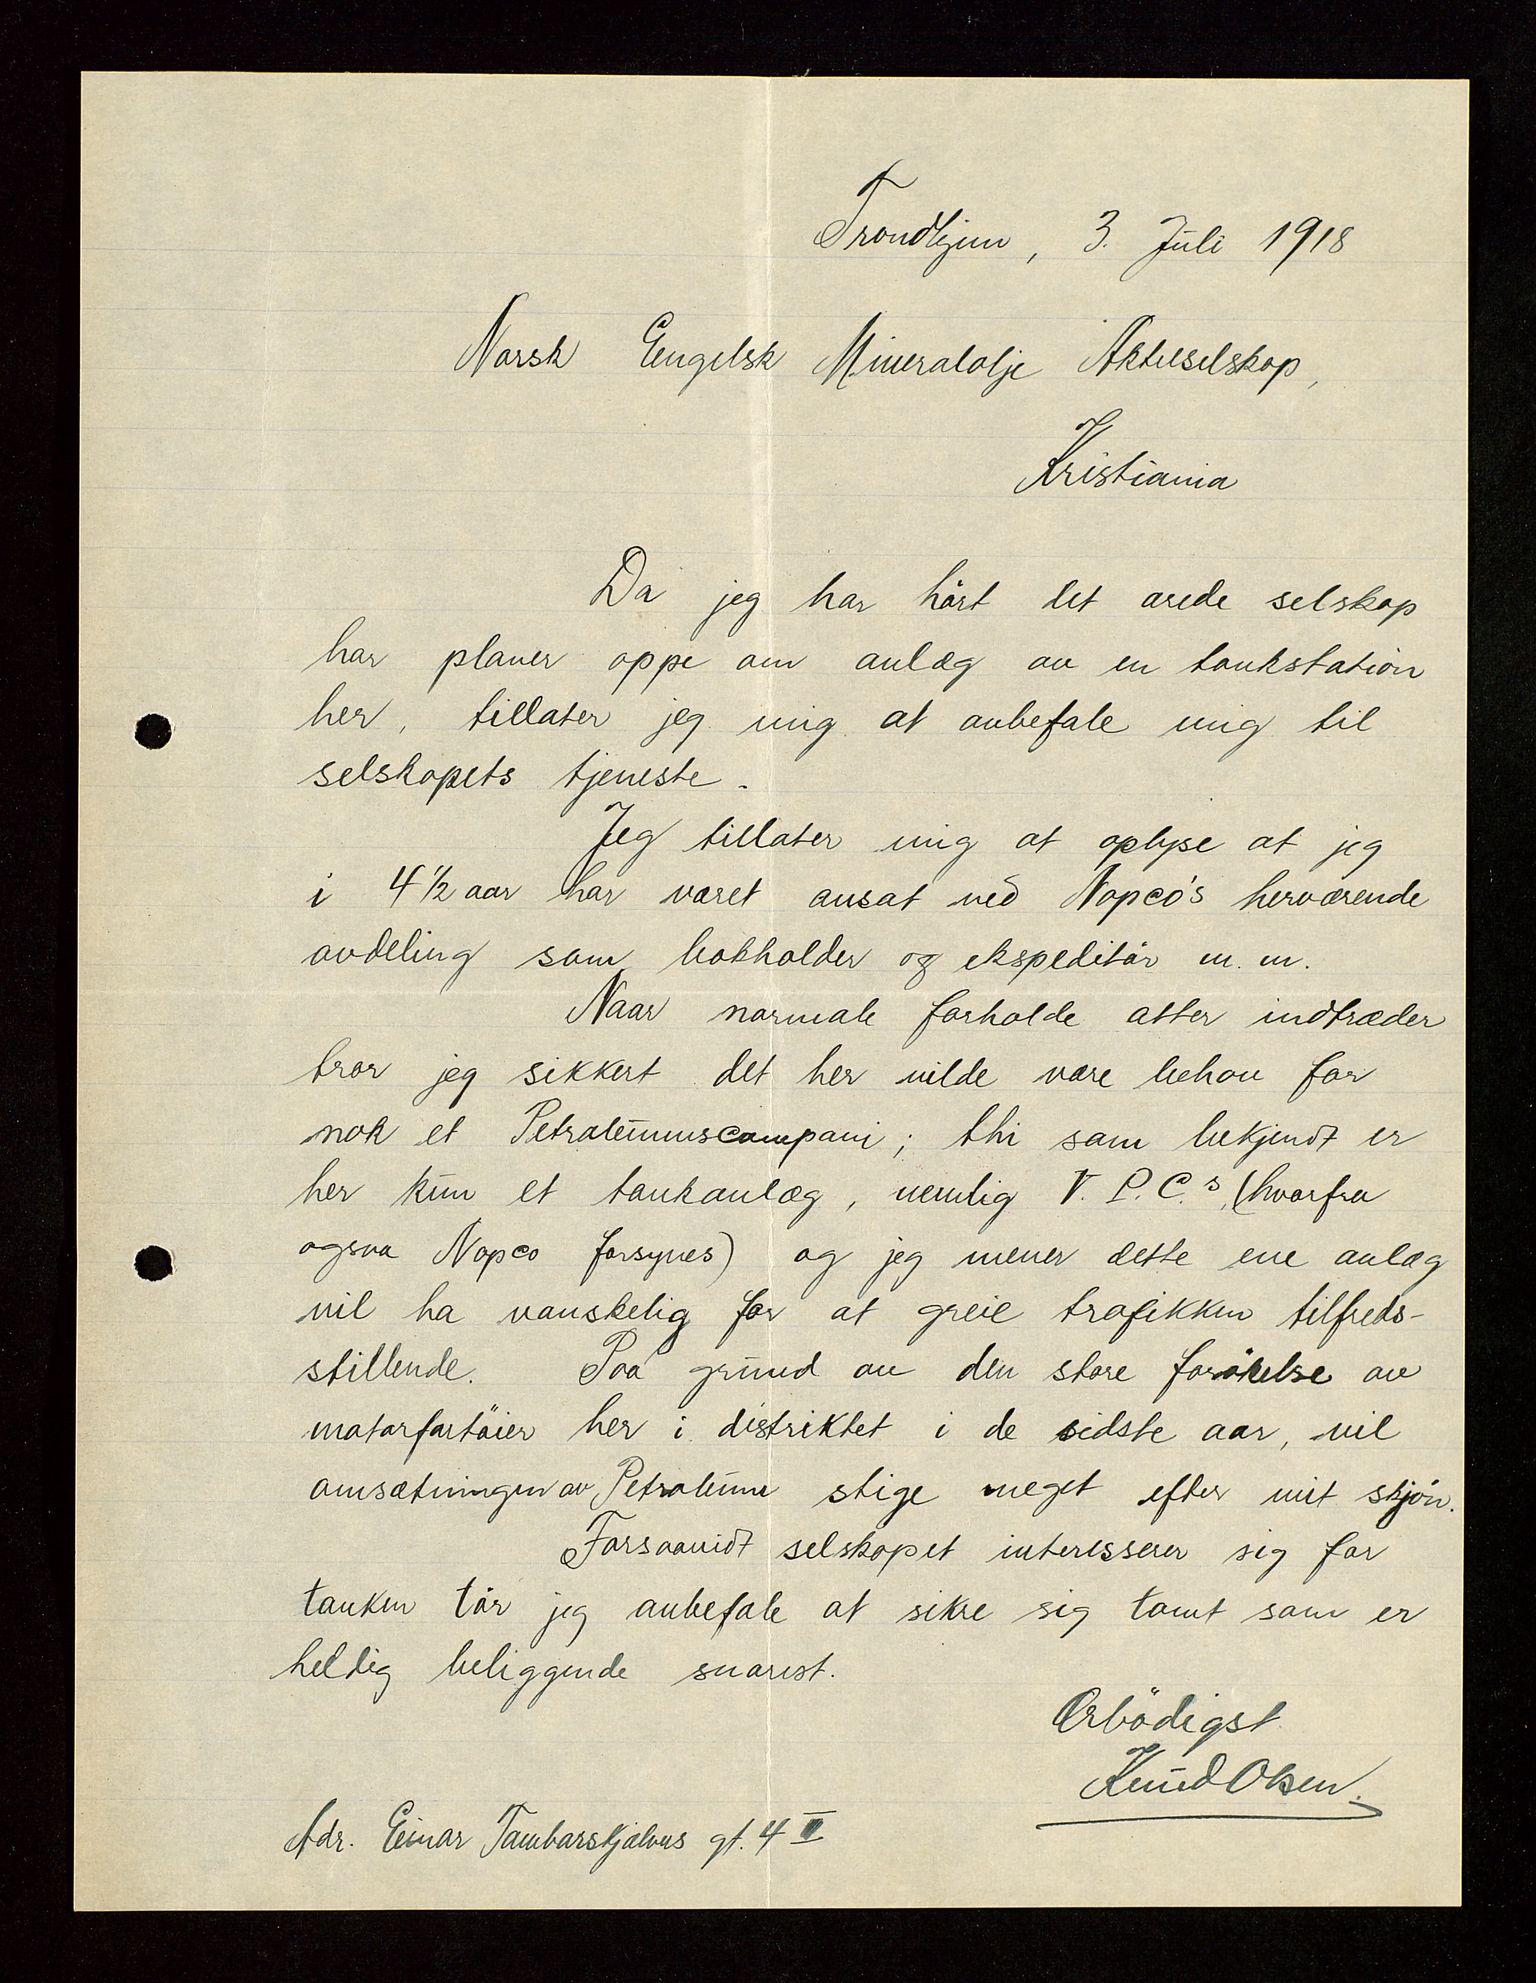 Trondhjem, 3. Juli 1918
Norsk Engelsk Mineralolje Aktieselskap,
Kristiania
Da jeg har hört det ærede selskap
har planer oppe om anlæg av en tankstation
her, tillater jeg mig at anbefale mig til
selskapets tjeneste.
Jeg tillater mig at oplyse at jeg
i 4 1/2 aar har været ansat ved Nopco's herværende
avdeling som bokholder og ekspeditör m. m.
Naar normale forholde atter indtræder
tror jeg sikkert det her vilde være behov for
nok et Petroleumscompani; thi som bekjendt er
her kun et tankanlæg, nemlig V. P. C.s, (hvorfra
ogsaa Nopco forsynes) og jeg mener dette ene anlæg
vil ha vanskelig for at greie trafikken tilfreds-
stillende. Paa grund av den store forökelse av
motorfartöier her i distriktet i de sidste aar, vil
omsætningen av Petroleum stige meget efter mit skjön.
Forsaavidt selskapet interesserer sig for
tanken tör jeg anbefale at sikre sig tomt som er
heldig beliggende snarest.
Ærbödigst
Knud Olsen.
Adr. Einar Tambarskjelvers gt. 4 III